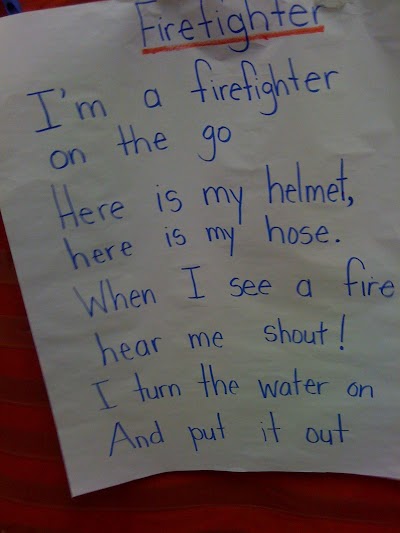 Firefighter
I'm a firefighter
on the go
Here is my helmet,
here is my hose.
When I see a fire
hear me shout!
I turn the water on
And put it out